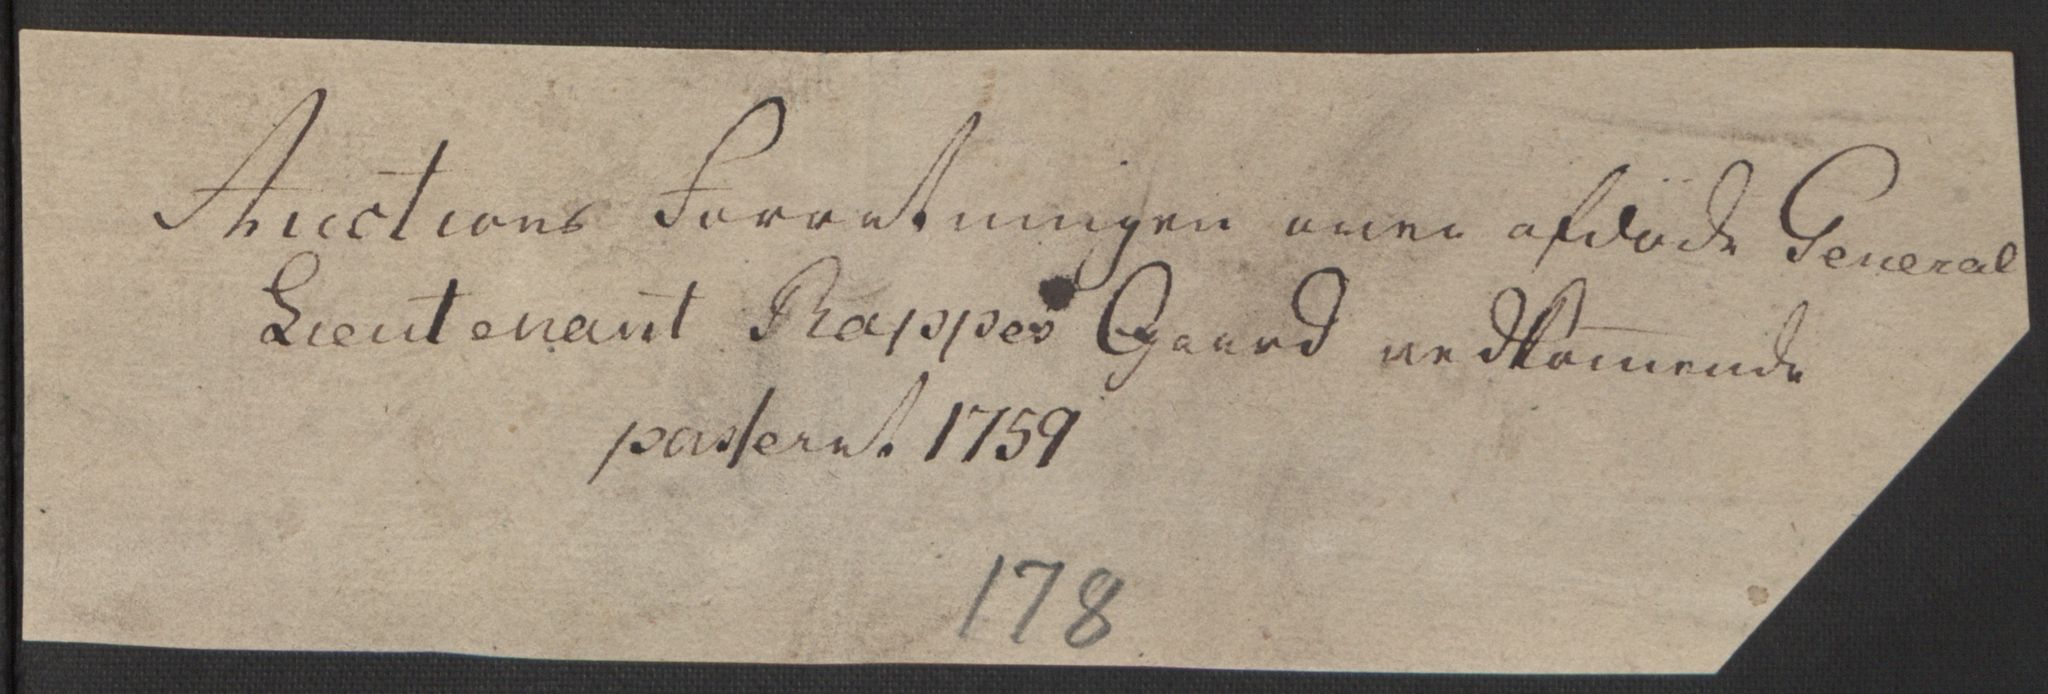 Auctions Forretningen over afdøde General
Lieutenant Rappes Gaard vedkom̄ende
passeret 1759
178